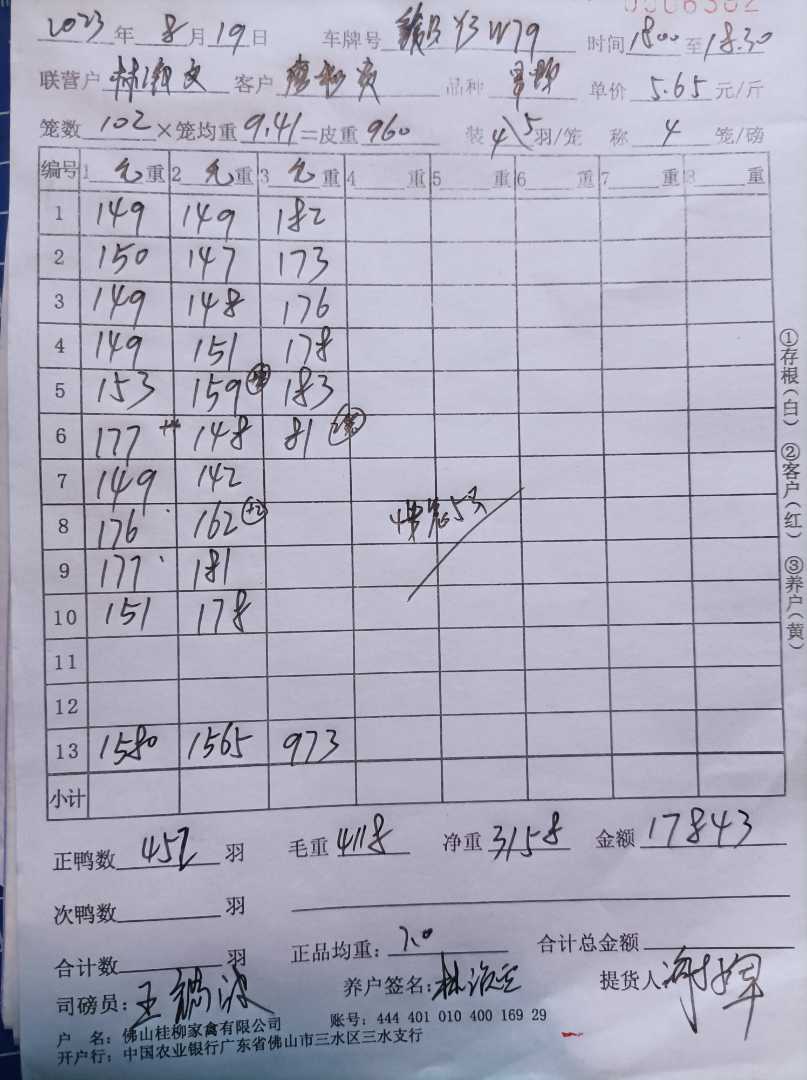 2023年 8月19日 车牌号 Y3W79 时间 18:00至18:30
联营户 客户 品种 单价 5.65 元/斤
笼数 102 ×笼均重 9.41 =皮重 960 装 4\5 羽/笼 称 4 笼/磅
编号 1 毛 重 2 毛 重 3 毛 重 4 重 5 重 6 重 7 重 8 重
1 149 149 182
2 150 147 173
3 149 148 176
4 149 151 178
5 153 159 183
6 177 148 81
7 149 142
8 176 162 +2
9 177 181
10 151 178
11
12
13 1580 1565 973
小计
①存根(白) ②客户(红) ③养户(黄)
正鸭数 452 羽 毛重 4118 净重 3158 金额 17843
次鸭数 羽
合计数 羽 正品均重: 7.0 合计总金额
司磅员: 养户签名: 提货人
户 名: 佛山桂柳家禽有限公司 账号: 444 401 010 400 169 29
开户行: 中国农业银行广东省佛山市三水区三水支行